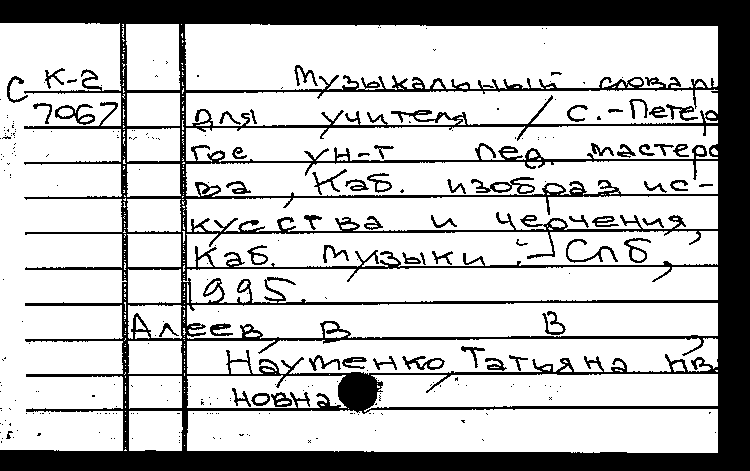 С К-2 Музыкальный словарь
7067 для учителя / С.-Петер
гос. ун-т пед. мастерс
ва, Каб. изобраз ис-
кусства и черчения,
Каб. музыки. - Спб,
1995.
Алеев В В
Науменко, Татьяна Ива
новна